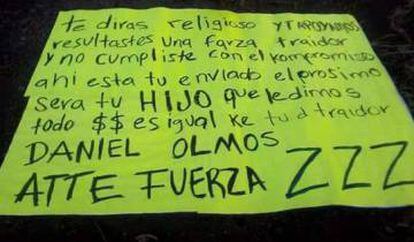 te diras religioso y
resultastes una farza, traidor
y no cumpliste con el kompromiso
ahi esta tu enviado el prosimo
sera tu HIJO que ledimos
todo $$ es igual ke tu d traidor
DANIEL OLMOS
ATTE FUERZA ZZZ